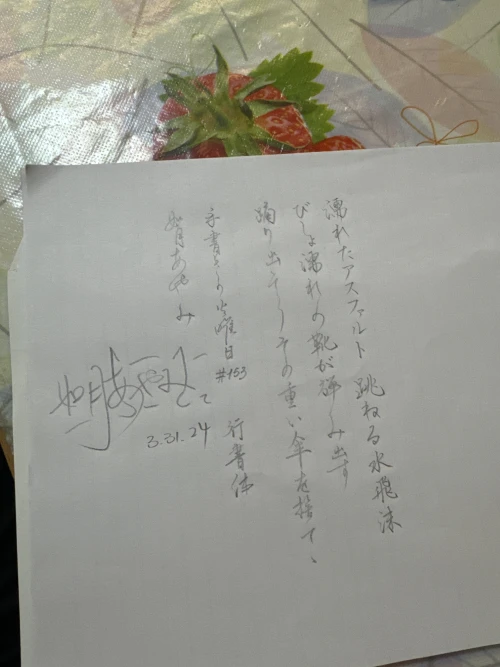 濡れたアスファルト 跳ねる水飛沫
びしょ濡れの靴が弾み出す
踊り出そうその重い傘を捨て、
手書きの火曜日
#153
行書体
如月あやみ
如月あやみ
3.31.24